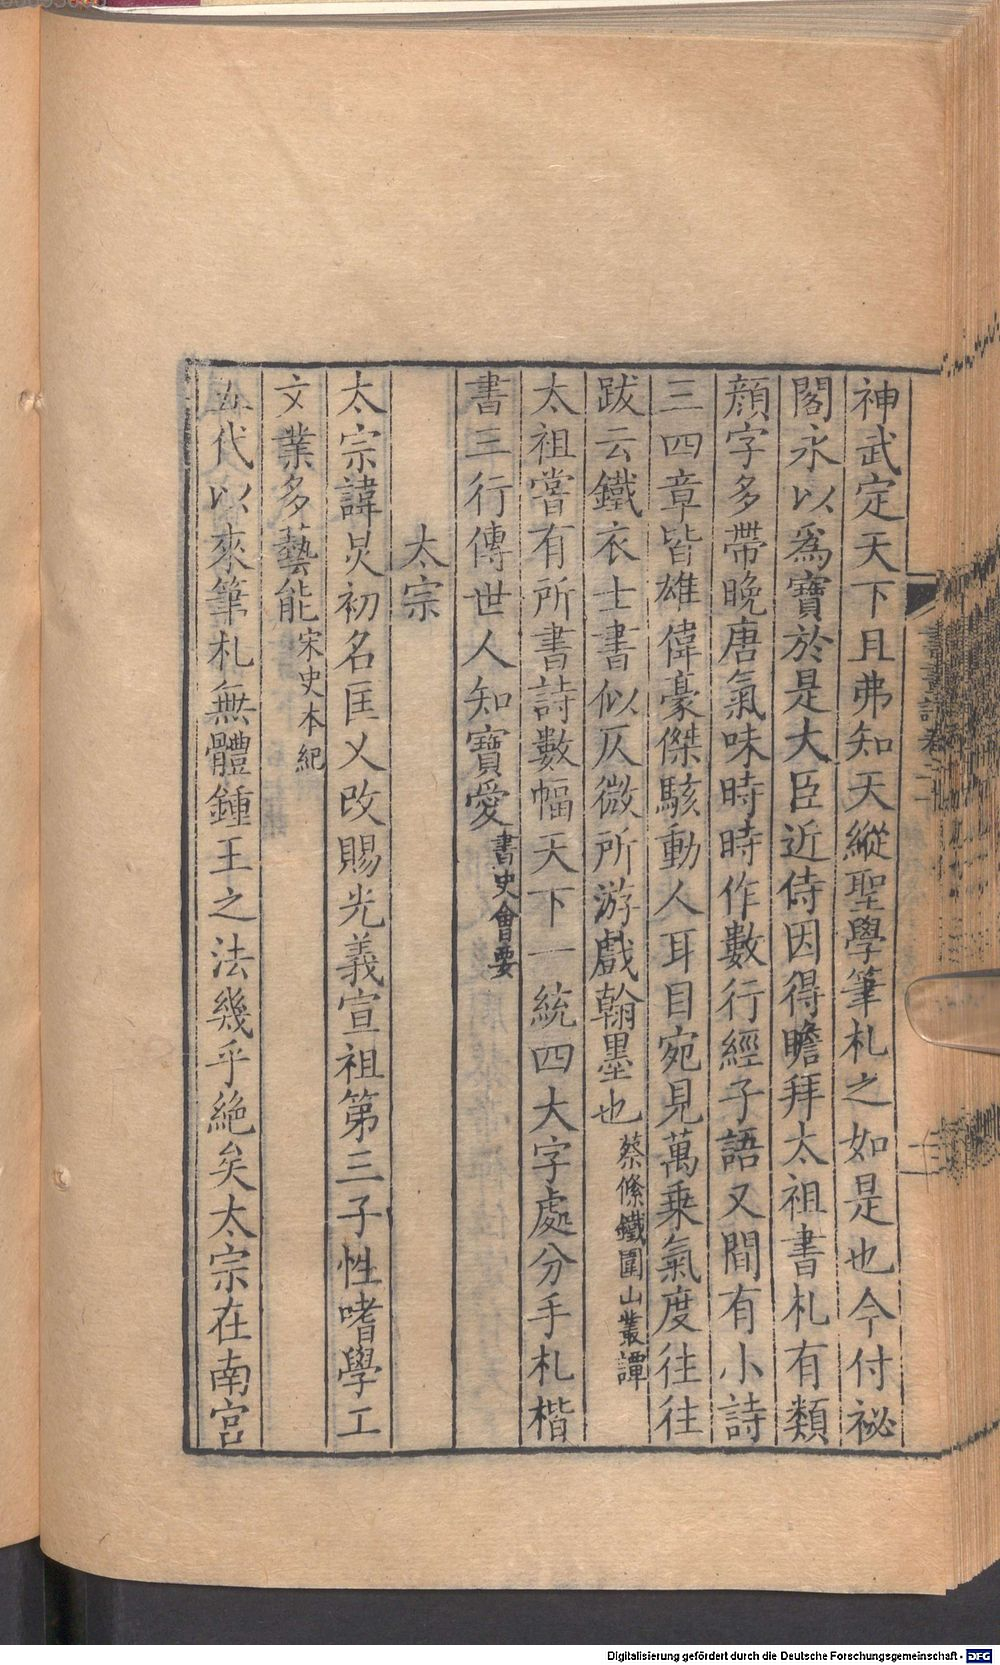 神武定天下且弗知天縱聖學筆札之如是也今付祕
閣永以爲寶於是大臣近侍因得瞻拜太祖書札有類
顏字多帶晚唐氣味時時作數行經子語又間有小詩
三四章皆雄偉豪傑駭動人耳目宛見萬乘氣度往往
跋云鐵衣士書似仄微所游戲翰墨也蔡絛鐵圍山叢譚
太祖嘗有所書詩數幅天下一統四大字處分手札楷
書三行傳世人知寶愛書史會要
太宗
太宗諱炅初名匡乂改賜光義宣祖第三子性嗜學工
文業多藝能宋史本紀
五代以來筆札無體鍾王之法幾乎絶矣太宗在南宮
書畫譜卷
Digitalisierung gefördert durch die Deutsche Forschungsgemeinschaft - DFG